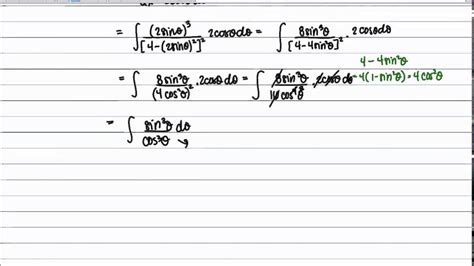 = ∫ (2sinθ)³ / [4-(2sinθ)²]² · 2cosθdθ = ∫ 8sin³θ / [4-4sin²θ]² · 2cosθdθ
4-4sin²θ
= ∫ 8sin³θ / (4cos²θ)² · 2cosθdθ = ∫ 8sin³θ / 16cos⁴θ · 2cosθdθ =4(1-sin²θ)=4cos²θ
= ∫ sin³θ dθ / cos³θ